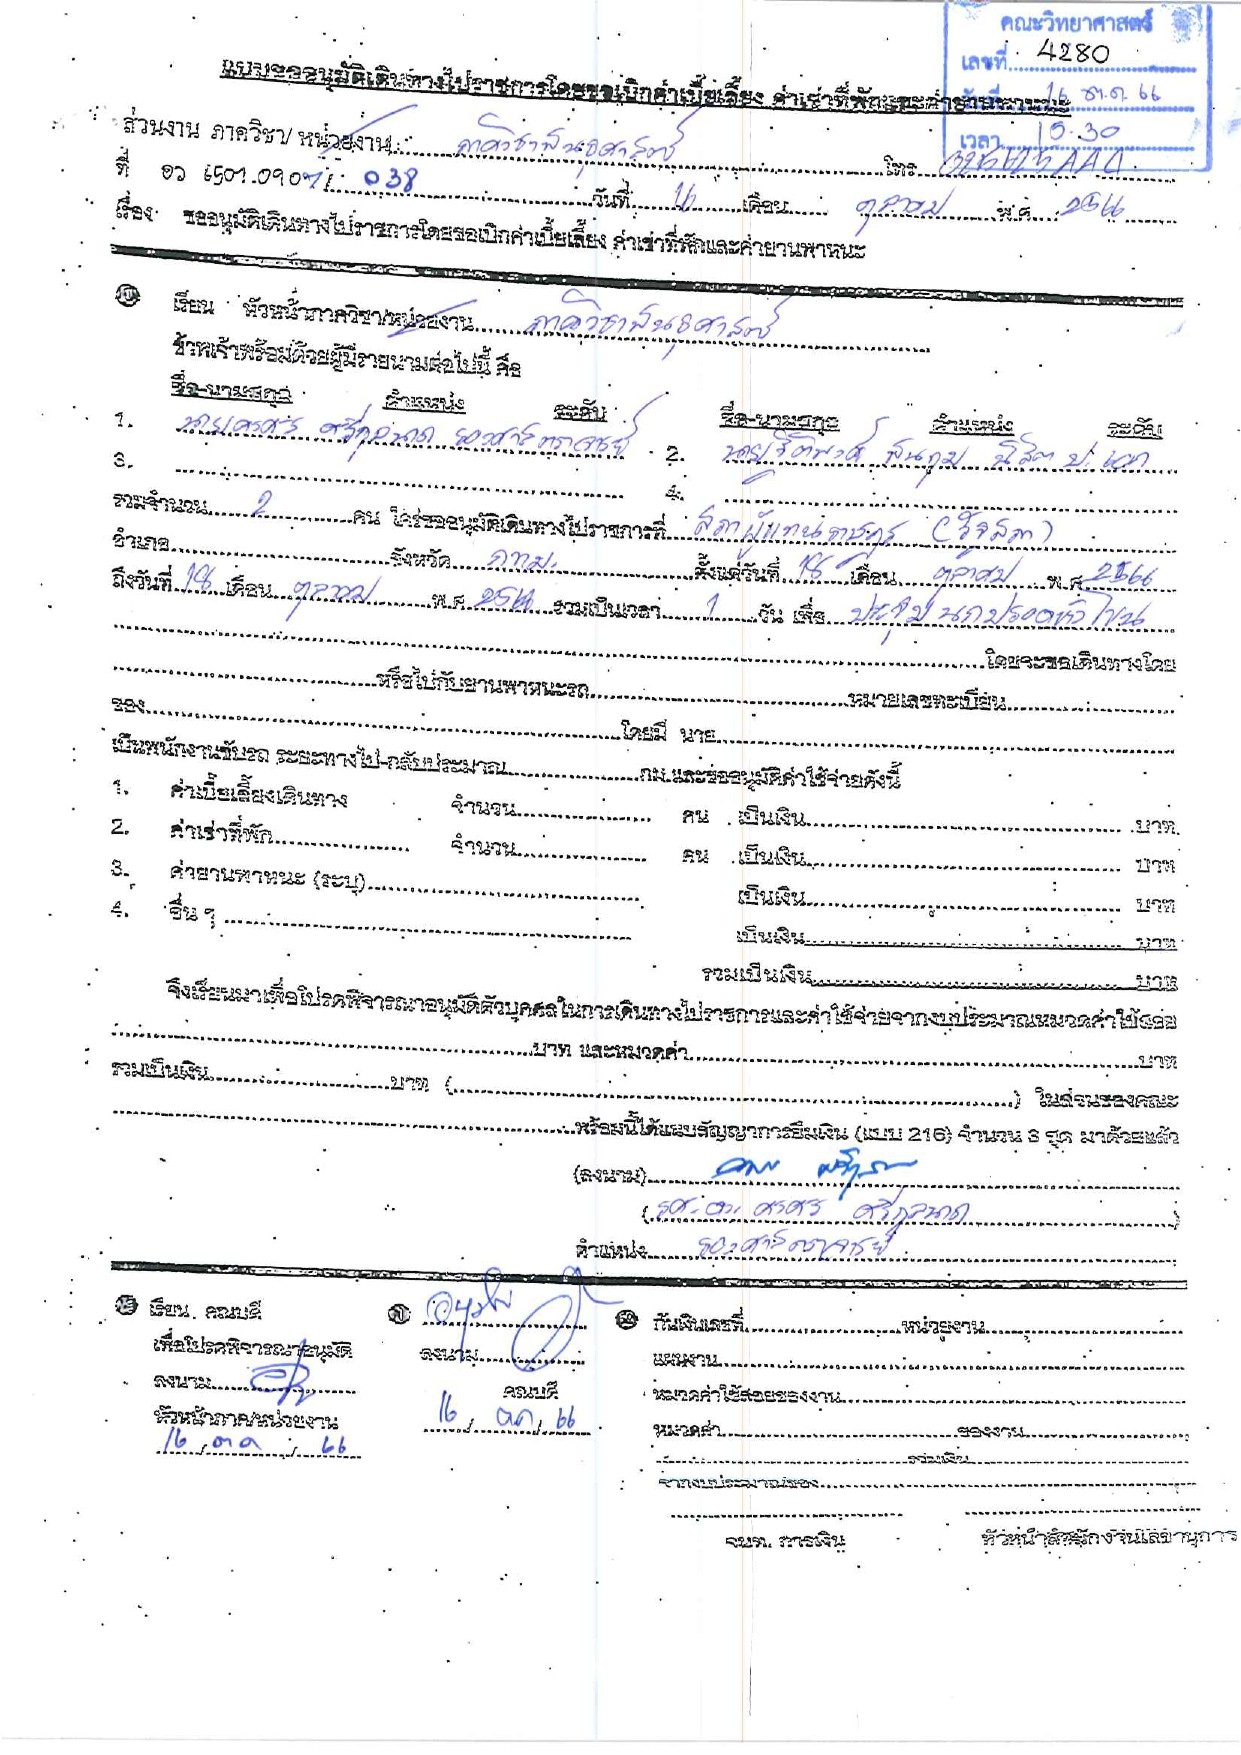 คณะวิทยาศาสตร์
เลขที่ 4280
วันที่ 16 ต.ค. 66
เวลา 15.30
แบบขออนุมัติเดินทางไปราชการโดยขอเบิกค่าเบี้ยเลี้ยง ค่าเช่าที่พักและค่ายานพาหนะ
ส่วนงาน ภาควิชา/ หน่วยงาน ภาควิชาพันธุศาสตร์ โทร.
ที่ อว 6501.0907/ 038 วันที่ 16 เดือน ตุลาคม พ.ศ. 2566
เรื่อง ขออนุมัติเดินทางไปราชการโดยขอเบิกค่าเบี้ยเลี้ยง ค่าเช่าที่พักและค่ายานพาหนะ
เรียน หัวหน้าภาควิชา/หน่วยงาน ภาควิชาพันธุศาสตร์
ข้าพเจ้าพร้อมด้วยผู้มีรายนามต่อไปนี้ คือ
ชื่อ-นามสกุล ตำแหน่ง ระดับ ชื่อ-นามสกุล ตำแหน่ง ระดับ
1. นายครศร ศรีกุลนาถ รองศาสตราจารย์ 2. นายฐิติพงศ์ พันทุม นิสิต ป.เอก
3. 4.
รวมจำนวน 2 คน ใคร่ขออนุมัติเดินทางไปราชการที่ สภาผู้แทนราษฎร (รัฐสภา)
อำเภอ จังหวัด กทม. ตั้งแต่วันที่ 18 เดือน ตุลาคม พ.ศ. 2566
ถึงวันที่ 18 เดือน ตุลาคม พ.ศ. 2566 รวมเป็นเวลา 1 วัน เพื่อ ประชุมนกปรอดหัวโขน
โดยจะขอเดินทางโดย
หรือไปกับยานพาหนะรถ หมายเลขทะเบียน
ของ โดยมี นาย
เป็นพนักงานขับรถ ระยะทางไป-กลับประมาณ กม.และขออนุมัติค่าใช้จ่ายดังนี้
1. ค่าเบี้ยเลี้ยงเดินทาง จำนวน คน เป็นเงิน บาท
2. ค่าเช่าที่พัก จำนวน คน เป็นเงิน บาท
3. ค่ายานพาหนะ (ระบุ) เป็นเงิน บาท
4. อื่น ๆ เป็นเงิน บาท
รวมเป็นเงิน บาท
จึงเรียนมาเพื่อโปรดพิจารณาอนุมัติตัวบุคคลในการเดินทางไปราชการและค่าใช้จ่ายจากงบประมาณหมวดค่าใช้สอย
บาท และหมวดค่า บาท
รวมเป็นเงิน บาท ( ) ในส่วนของคณะ
พร้อมนี้ได้แนบสัญญาการยืมเงิน (แบบ 216) จำนวน 3 ชุด มาด้วยแล้ว
(ลงนาม)
(รศ.ดร. ครศร ศรีกุลนาถ)
ตำแหน่ง รองศาสตราจารย์
เรียน คณบดี
เพื่อโปรดพิจารณาอนุมัติ
ลงนาม
หัวหน้าภาค/หน่วยงาน
16 / ต.ค. / 66
อนุมัติ
ลงนาม
คณบดี
16 / ต.ค. / 66
กันเงินเลขที่ หน่วยงาน
แผนงาน
หมวดค่าใช้สอยของงาน
หมวดค่า ของงาน
รวมเงิน
จากงบประมาณของ
จนท. การเงิน หัวหน้าสำนักงานเลขานุการ